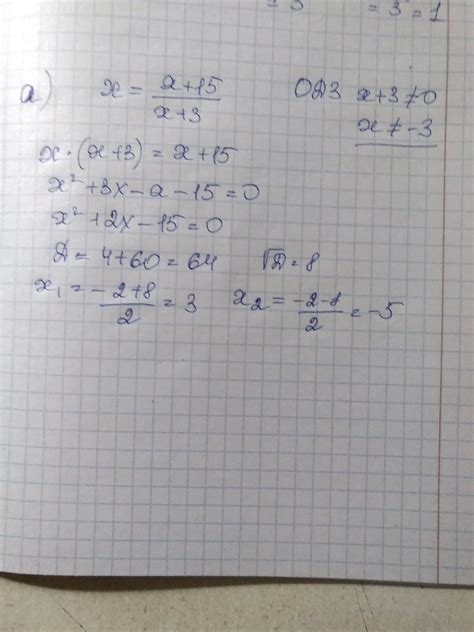 = 3 = 3 = 1
а) x = x+15 / x+3 ОДЗ x+3≠0
x ≠ -3
x·(x+3) = x+15
x² + 3x - x - 15 = 0
x² + 2x - 15 = 0
D = 4+60 = 64 √D = 8
x₁ = -2+8 / 2 = 3 x₂ = -2-8 / 2 = -5